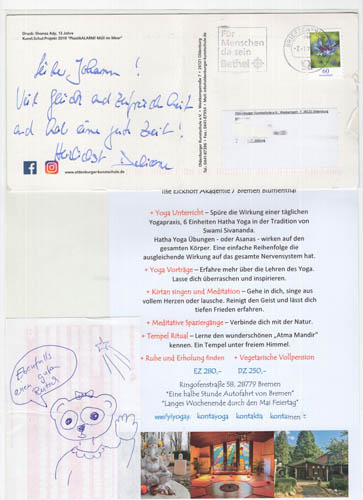 Druck: Thomas Ady, 13 Jahre
Kunst.Schul.Projekt 2019 "PlastikALARM! Müll im Meer"
Lieber Johann!
Viel Glück und Zufriedenheit
und hab eine gute Zeit!
Herzlichst
www.oldenburger-kunstschule.de
Für
Menschen
da sein
Bethel
60
die Elckhoff Akademie / Bremen Blumenthal
+ Yoga Unterricht – Spüre die Wirkung einer täglichen
Yogapraxis, 6 Einheiten Hatha Yoga in der Tradition von
Swami Sivananda.
Hatha Yoga Übungen - oder Asanas - wirken auf den
gesamten Körper. Eine einfache Reihenfolge die
ausgleichende Wirkung auf das gesamte Nervensystem hat.
+ Yoga Vorträge – Erfahre mehr über die Lehren des Yoga.
Lasse dich überraschen und inspirieren.
+ Kirtan singen und Meditation – Gehe in dich, singe aus
vollem Herzen oder lausche. Reinigt den Geist und lässt dich
tiefen Frieden erfahren.
+ Meditative Spaziergänge – Verbinde dich mit der Natur.
+ Tempel Ritual – Lerne den wunderschönen "Atma Mandir"
kennen. Ein Tempel unter freiem Himmel.
+ Ruhe und Erholung finden + Vegetarische Vollpension
EZ 280,- DZ 250,-
Ringofenstraße 58, 28779 Bremen
"Eine halbe Stunde Autofahrt von Bremen"
"Langes Wochenende durch den Mai Feiertag"
Ebenfalls
einen guten
Rutsch